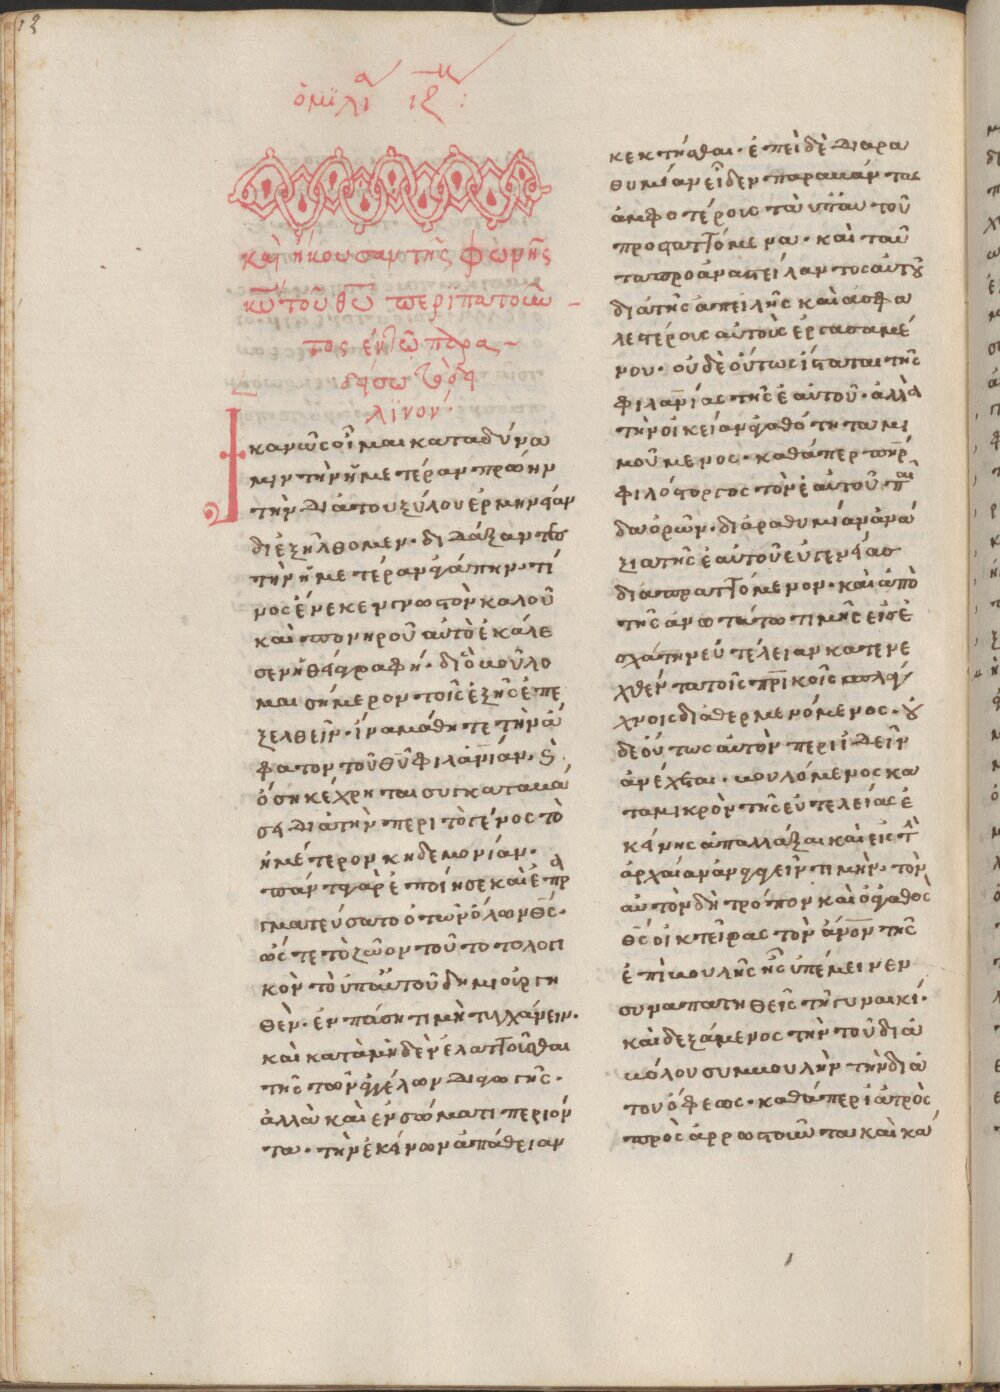 ὁμιλία ιζ :
καὶ ἤκουσαν τῆς φωνῆς
κ̅υ̅ τοῦ θ̅υ̅ περιπατοῦν
τος ἐν τῶ παρα
δείσω τὸ δει
λινόν·
Ἱκανῶς οἶμαι κατὰ δύνα
μιν τὴν ἡμετέραν πρώην
τὴν διὰ τοῦ ξύλου ἑρμηνείαν
διεξήλθομεν· διδάξαντες
τὴν ἡμετέραν ἀγάπην· τί
νος ἕνεκεν γνωστὸν καλοῦ
καὶ πονηροῦ αὐτὸ ἐκάλε
σεν ἡ θεία γραφή· διὸ βούλο
μαι σήμερον τοῖς ἑξῆς ἐπε
ξελθεῖν· ἵνα μάθητε τὴν ἄ
φατον τοῦ θ̅υ̅ φιλα̅ν̅ίαν· καὶ
ὅση κέχρηται συγκαταβά
σει διὰ τὴν περὶ τὸ γένος τὸ
ἡμέτερον κηδεμονίαν·
πάντα γὰρ ἐποίησε καὶ ἐπρα
γματεύσατο ὁ τῶν ὅλων θ̅ς̅·
ὥστε τὸ ζῶον τοῦτο τὸ λογι
κὸν τὸ ὑπ' αὐτοῦ δημιουργη
θὲν· ἐν πάση τιμῆ τυγχάνειν·
καὶ κατὰ μηδὲν ἐλαττοῦσθαι
τῆς τῶν ἀγγέλων διαγωγῆς·
ἀλλὰ καὶ ἐν σώματι περιόν
τα· τὴν ἐκείνων ἀπάθειαν
κεκτῆσθαι· ἐπεὶ δὲ διὰ ῥα
θυμίαν εἶδεν παραβάντας
ἀμφοτέρους τὰ ὑπ' αὐτοῦ
προστατττόμενα· καὶ ταῦ
τα προαναστείλαντος αὐτοῦ
διὰ τῆς ἀπειλῆς καὶ ἀσφα
λεστέρους αὐτοὺς ἐργασαμέ
νου· οὐδὲ οὕτως ἵσταται τῆς
φιλα̅ν̅ίας τῆς ἑαυτοῦ· ἀλλὰ
τὴν οἰκείαν ἀγαθότητα μι
μούμενος· καθάπερ π̅η̅ρ̅
φιλόστοργος τὸν ἑαυτοῦ παῖ
δα ὁρῶν· διὰ ῥαθυμίαν ἀνά
ξια τῆς ἑαυτοῦ εὐγενείας
διαπραττόμενον· καὶ ἀπὸ
τῆς ἀνωτάτω τιμῆς εἰς ἐ
σχάτην εὐτέλειαν κατενε
χθέντα τοῖς π̅ρ̅ικοῖς σπλάγ
χνοις διαθερμενόμενος· οὐ
δὲ οὕτως αὐτὸν περιιδεῖν
ἀνέχεται· βουλόμενος κα
τὰ μικρὸν τῆς εὐτελείας ἐ
κείνης ἀπαλλάξαι καὶ εἰς τὴν
ἀρχαίαν ἀναγαγεῖν τιμὴν· τὸν
αὐτὸν δὴ τρόπον καὶ ὁ ἀγαθὸς
θ̅ς̅ οἰκτείρας τὸν α̅ν̅ο̅ν̅ τῆς
ἐπιβουλῆς ἧς ὑπέμεινεν
συναπατηθεὶς τῇ γυναικί·
καὶ δεξάμενος τὴν τοῦ δια
βόλου συμβουλὴν τὴν διὰ
τοῦ ὄφεως· καθάπερ ἰατρὸς
πρὸς ἀρρωστοῦντα καὶ κά